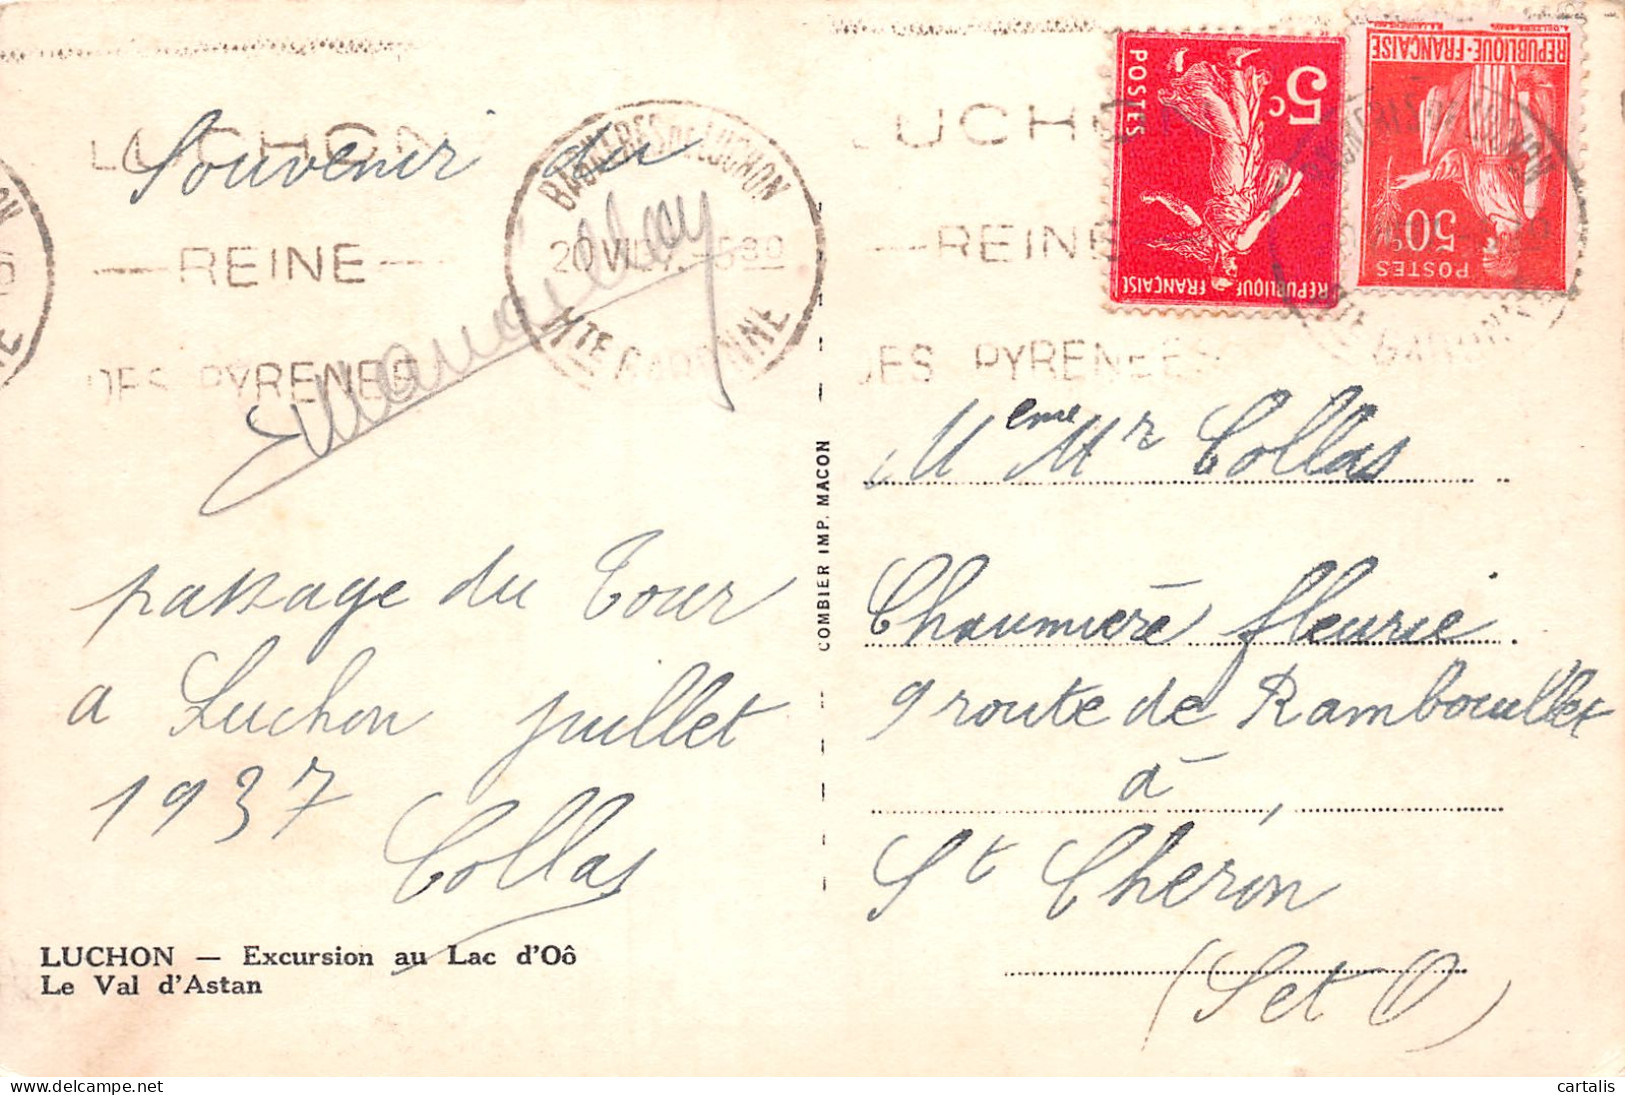 LUCHON
REINE
DES PYRENEES
BAGNERES DE LUCHON
HTE GARONNE
Souvenir du
passage du Tour
a Luchon juillet
1937
Collas
LUCHON — Excursion au Lac d'Oô
Le Val d'Astan
COMBIER IMP. MACON
UCHO
REINE
DES PYRENEES
POSTES
5c
REPUBLIQUE FRANÇAISE
REPUBLIQUE·FRANÇAISE
50c
POSTES
Meme Mr Collas
Chaumière fleurie
9 route de Rambouillet
à
St Cheron
(S et O)
cartalis